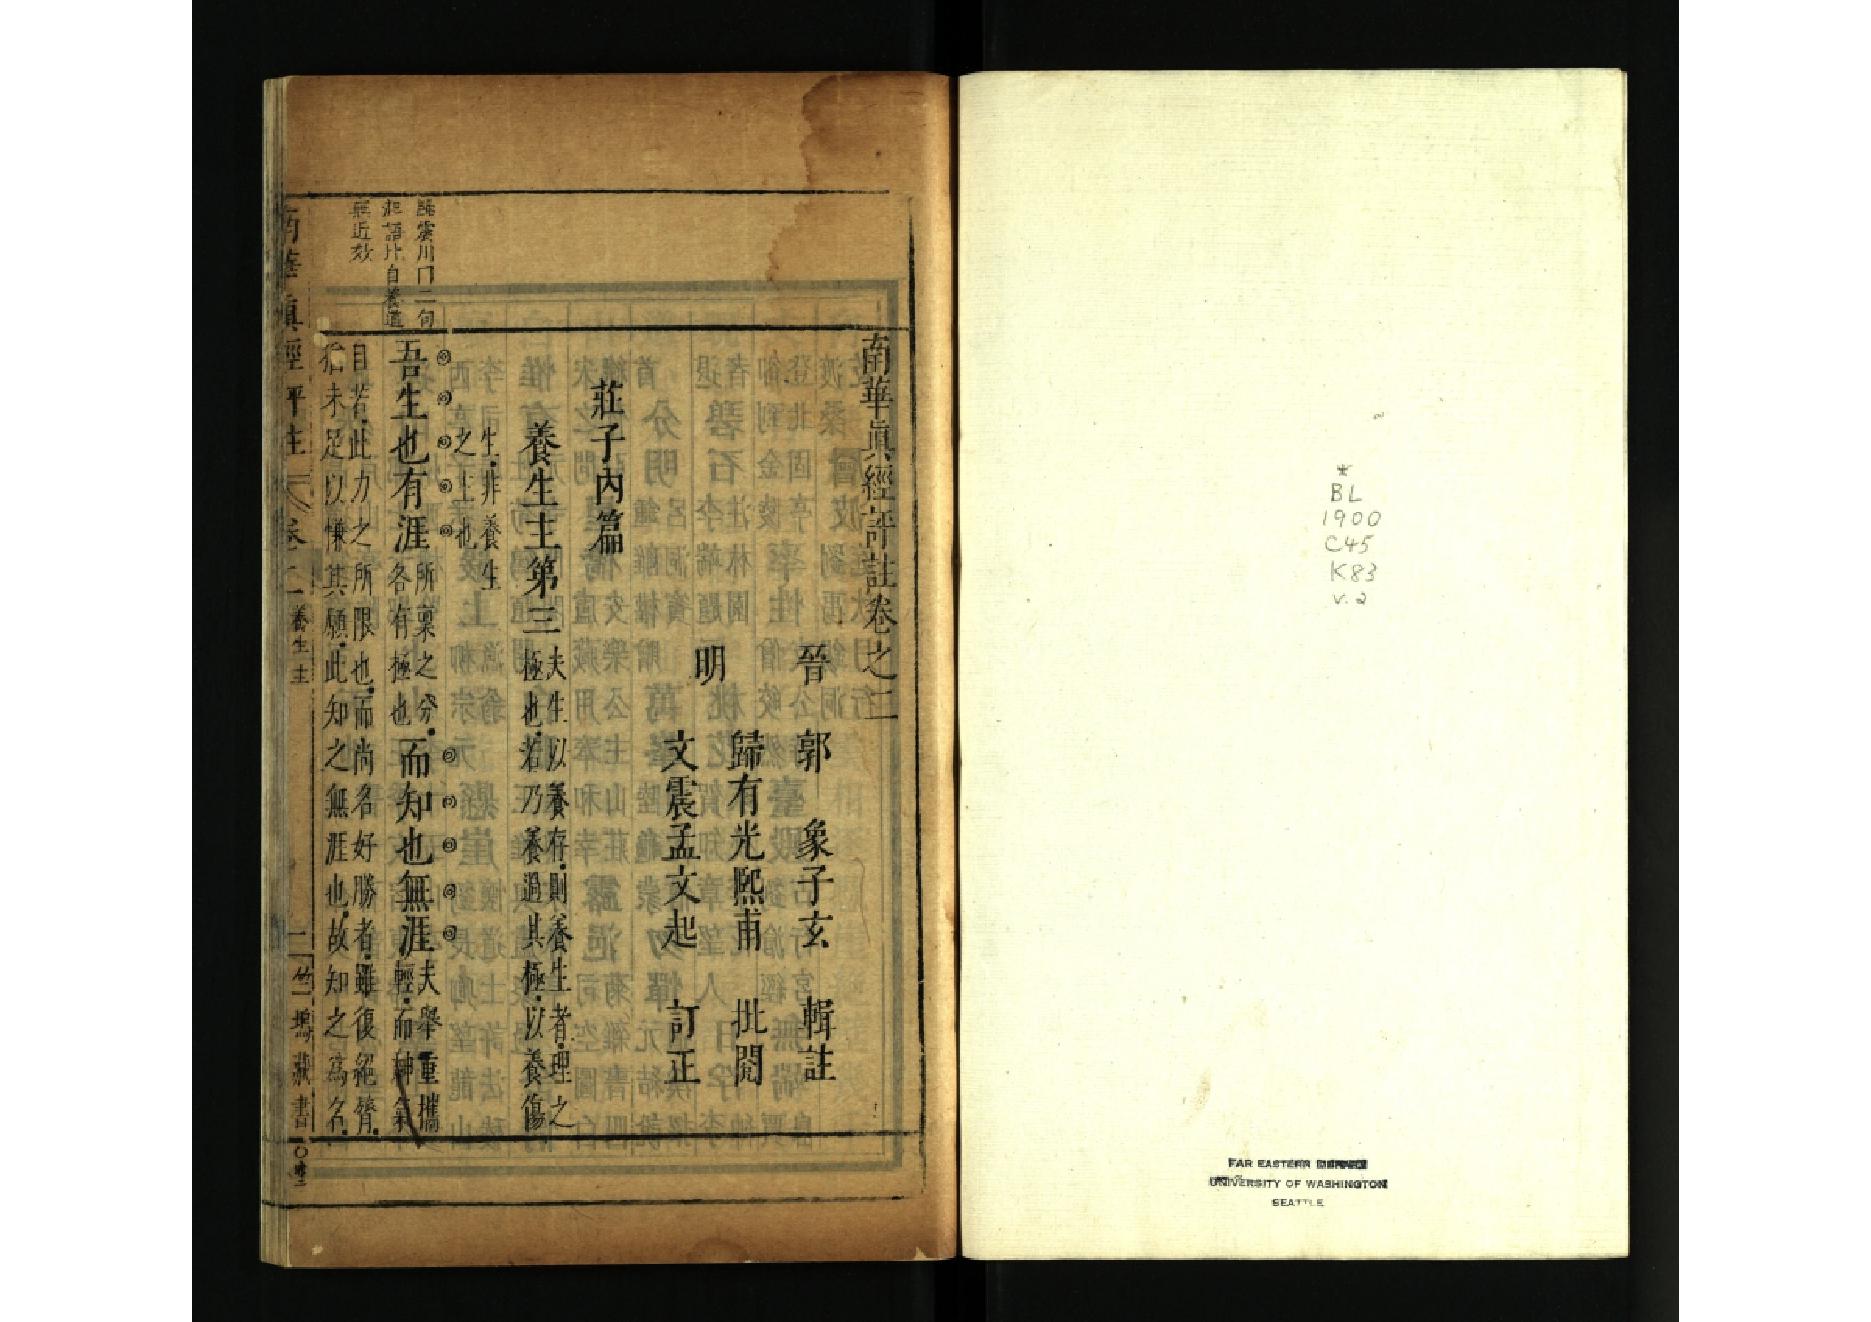 *
BL
1900
C45
K83
v.2
FAR EASTERN LIBRARY
UNIVERSITY OF WASHINGTON
SEATTLE
南華眞經評註卷之二
晉 郭 象子玄 輯註
明 歸有光熙甫 批閱
文震孟文起 訂正
莊子內篇
養生主第三 夫生以養存，則養生者，理之
極也，若乃養過其極，以養傷
生，非養生
之主也
吾生也有涯 所稟之分，
各有極也
而知也無涯 夫舉重攜
輕，而神氣
自若，此力之所限也，而尚名好勝者，雖復絕膂，
猶未足以慊其願，此知之無涯也，故知之爲名，
震川口二句
起語片自養道
近效
南華眞經評註 卷之二 養生主 一 竺塢藏書